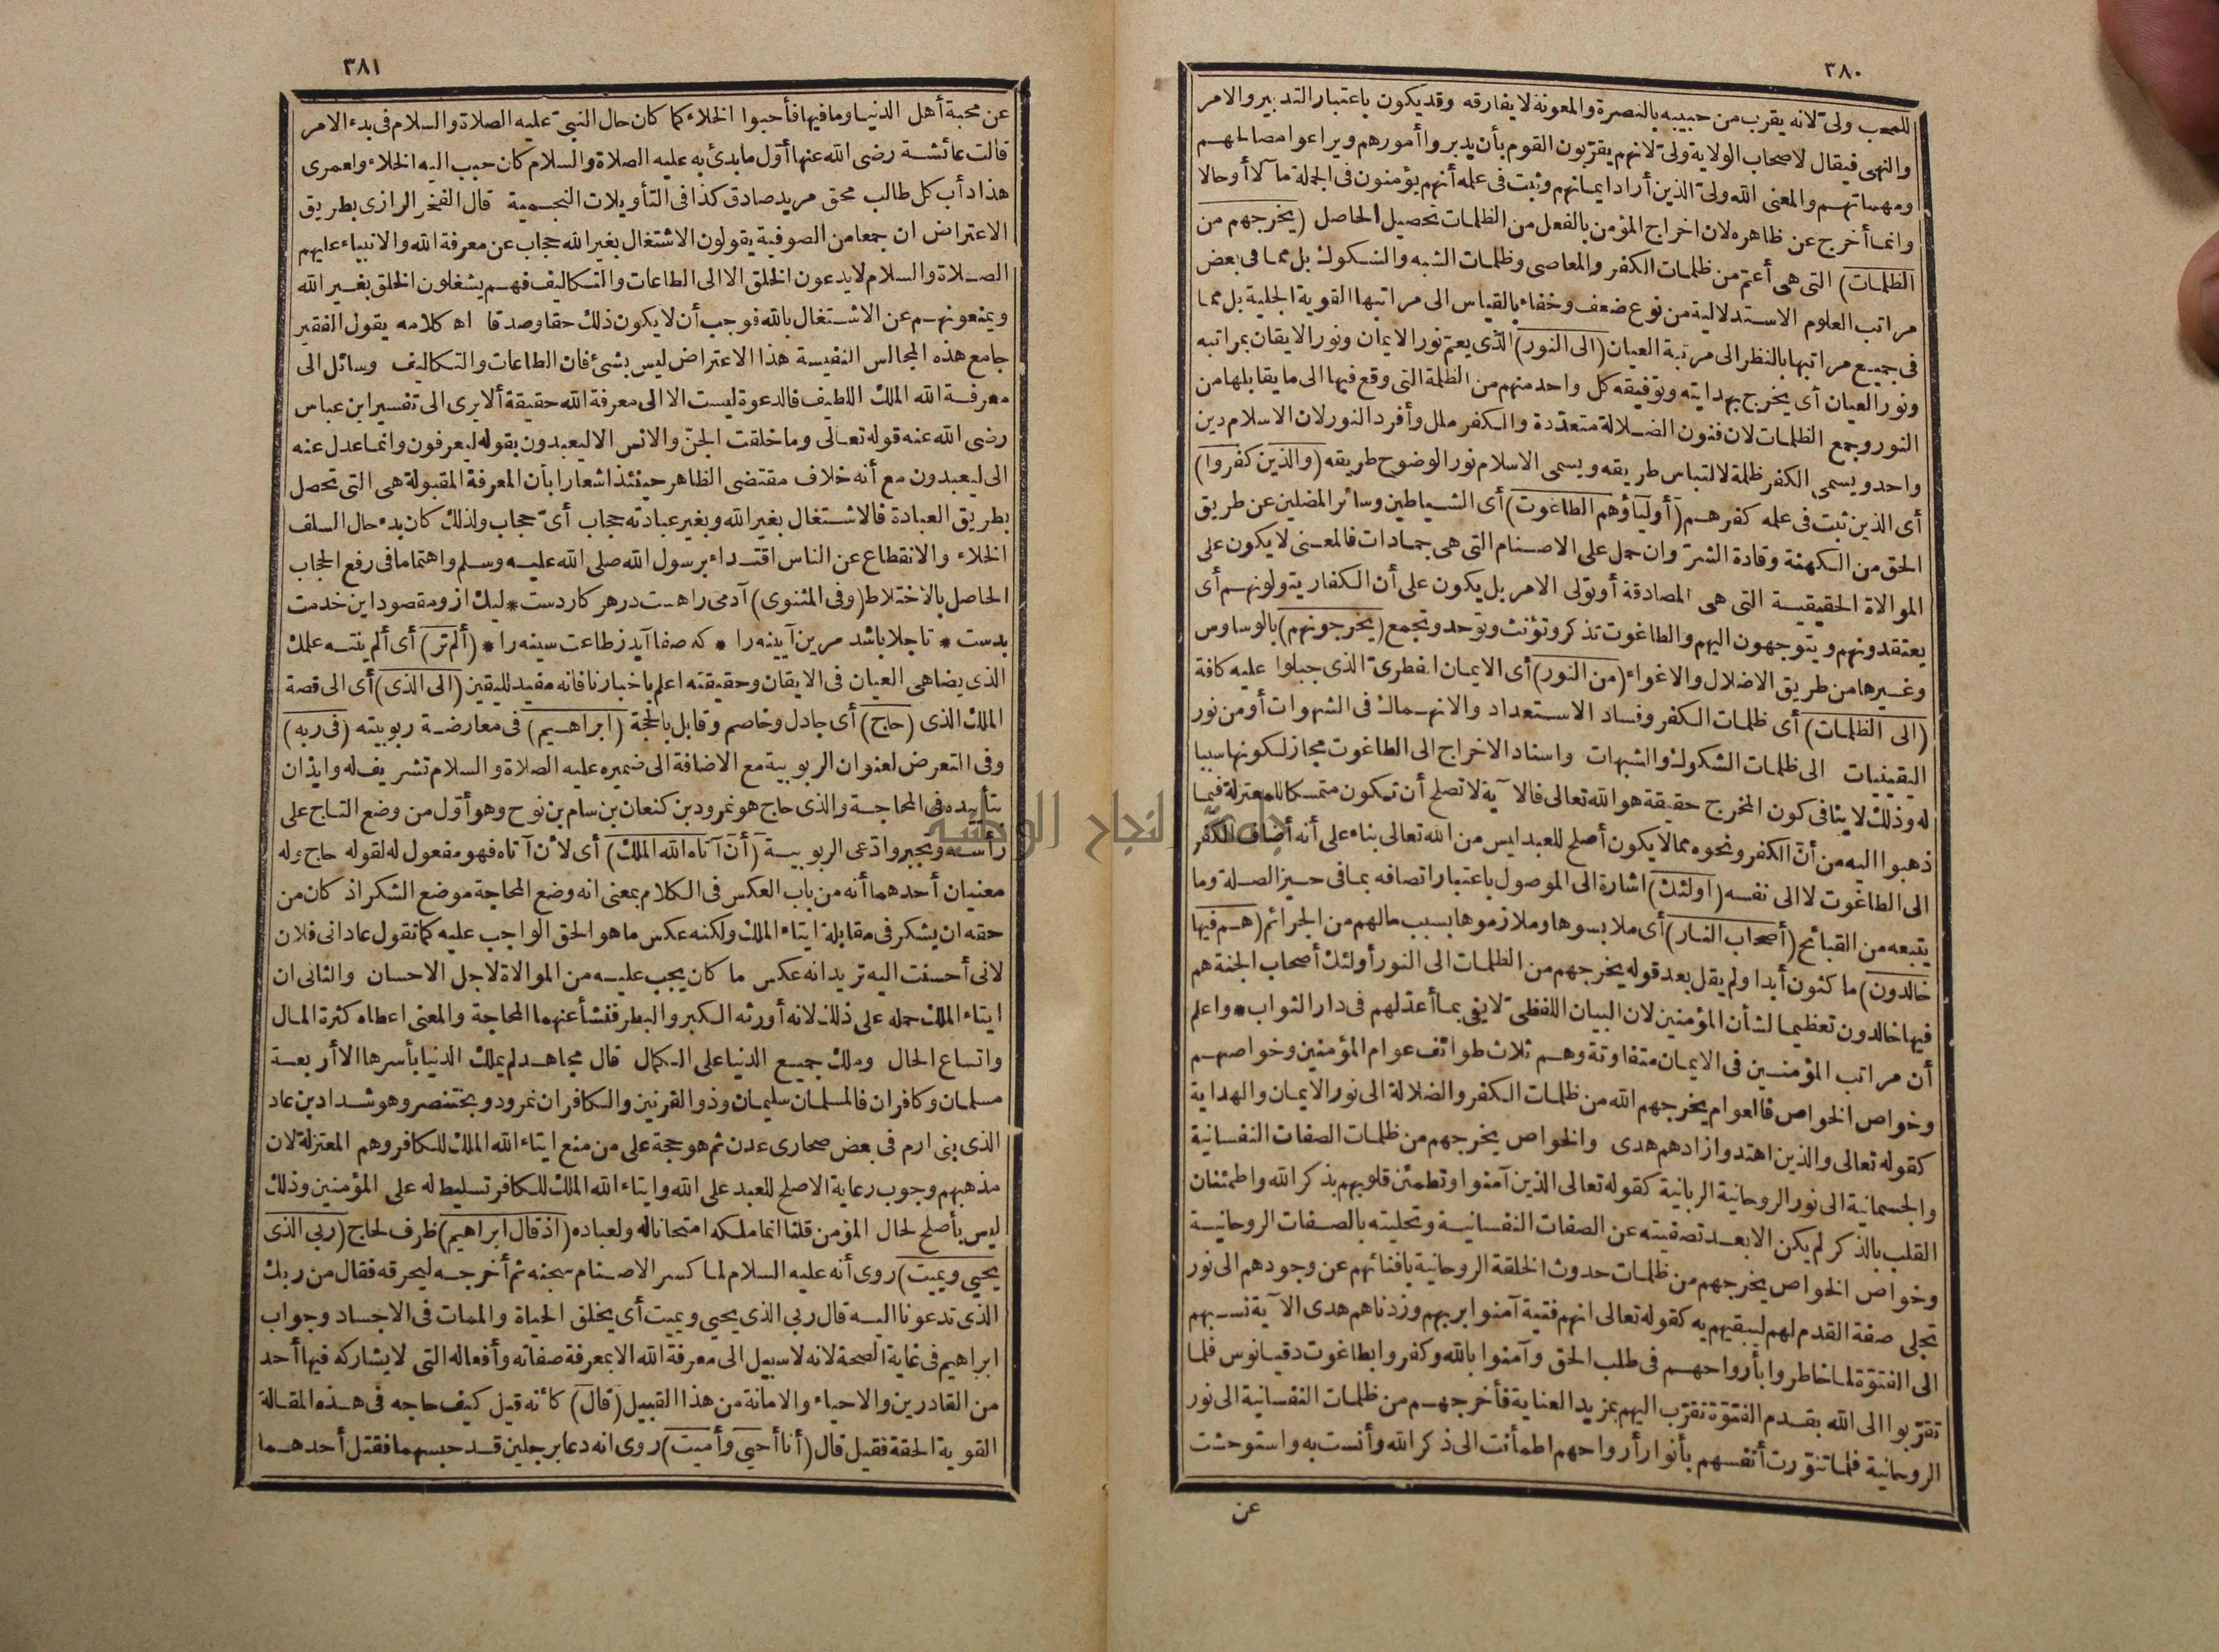 ٣٨٠
للمحب ولىّ لانه يقرب من حبيبه بالنصرة والمعونة لا يفارقه وقد يكون باعتبار التدبير والامر
والنهى فيقال لاصحاب الولاية ولىّ لانهم يقرّبون القوم بأن يدبروا أمورهم ويراعوا مصالحهم
ومهماتهم والمعنى الله ولىّ الذين أراد ايمانهم وثبت فى علمه أنهم يؤمنون فى الجملة مآلا أو حالا
وانما أخرج عن ظاهره لان اخراج المؤمن بالفعل من الظلمات تحصيل الحاصل (يخرجهم من
الظلمات) التى هى أعتم من ظلمات الكفر والمعاصى وظلمات الشبه والشكوك بل مما فى بعض
مراتب العلوم الاستدلالية من نوع ضعف وخفاء بالقياس الى مراتبها القوية الجلية بل مما
فى جميع مراتبها بالنظر الى مرتبة العيان (الى النور) الذى يعم نور الايمان ونور الايقان بمراتبه
ونور العيان أى يخرج بهدايته وتوفيقه كل واحد منهم من الظلمة التى وقع فيها الى ما يقابلها من
النور وجمع الظلمات لان فنون الضلالة متعدّدة والكفر ملل وأفرد النور لان الاسلام دين
واحد ويسمى الكفر ظلمة لالتباس طريقه ويسمى الاسلام نورا لوضوح طريقه (والذين كفروا)
أى الذين ثبت فى علمه كفرهم (أولياؤهم الطاغوت) أى الشياطين وسائر المضلين عن طريق
الحق من الكهنة وقادة الشرّ وان حمل على الاصنام التى هى جمادات فالمعنى لا يكون على
الموالاة الحقيقية التى هى المصادقة أو تولى الامر بل يكون على أن الكفار يتولونهم أى
يعتقدونهم ويتوجهون اليهم والطاغوت تذكر وتؤنث وتوحد وتجمع (يخرجونهم) بالوساوس
وغيرها من طريق الاضلال والاغواء (من النور) أى الايمان الفطرىّ الذى جبلوا عليه كافة
(الى الظلمات) أى ظلمات الكفر وفساد الاستعداد والانهماك فى الشهوات أو من نور
اليقينيات الى ظلمات الشكوك والشبهات واسناد الاخراج الى الطاغوت مجاز لكونها سببا
له وذلك لا ينافى كون المخرج حقيقة هو الله تعالى فالآية لا تصلح أن تكون متمسكا للمعتزلة فيما
ذهبوا اليه من أنّ الكفر ونحوه مما لا يكون أصلح للعبد ليس من الله تعالى بناء على أنه أضاف الكفر
الى الطاغوت لا الى نفسه (اولئك) اشارة الى الموصول باعتبار اتصافه بما فى حيز الصلة وما
يتبعه من القبائح (أصحاب النار) أى ملابسوها وملازموها بسبب مالهم من الجرائم (هم فيها
خالدون) ماكثون أبدا ولم يقل بعد قوله يخرجهم من الظلمات الى النور أولئك أصحاب الجنة هم
فيها خالدون تعظيما لشأن المؤمنين لان البيان اللفظىّ لا يفى بما أعدّ لهم فى دار الثواب * واعلم
أن مراتب المؤمنين فى الايمان متفاوتة وهم ثلاث طوائف عوام المؤمنين وخواصهم
وخواص الخواص فالعوام يخرجهم الله من ظلمات الكفر والضلالة الى نور الايمان والهداية
كقوله تعالى والذين اهتدوا زادهم هدى والخواص يخرجهم من ظلمات الصفات النفسانية
والجسمانية الى نور الروحانية الربانية كقوله تعالى الذين آمنوا وتطمئن قلوبهم بذكر الله واطمئنان
القلب بالذكر لم يكن الا بعد تصفيته عن الصفات النفسانية وتحليته بالصفات الروحانية
وخواص الخواص يخرجهم من ظلمات حدوث الخلقة الروحانية بافنائهم عن وجودهم الى نور
تجلى صفة القدم لهم ليبقيهم به كقوله تعالى انهم فتية آمنوا بربهم وزدناهم هدى الآية نسبهم
الى الفتوّة لما خاطروا بأرواحهم فى طلب الحق وآمنوا بالله وكفروا بطاغوت دقيانوس فلما
تقرّبوا الى الله بقدم الفتوّة تقرّب اليهم بمزيد العناية فأخرجهم من ظلمات النفسانية الى نور
الروحانية فلما تنوّرت أنفسهم بأنوار أرواحهم اطمأنت الى ذكر الله وأنست به واستوحشت
عن
٣٨١
عن محبة أهل الدنيا وما فيها فأحبوا الخلاء كما كان حال النبىّ عليه الصلاة والسلام فى بدء الامر
قالت عائشة رضى الله عنها أوّل ما بدئ به عليه الصلاة والسلام كان حبب اليه الخلاء ولعمرى
هذا دأب كل طالب محق مريد صادق كذا فى التأويلات النجمية قال الفخر الرازى بطريق
الاعتراض ان جمعا من الصوفية يقولون الاشتغال بغير الله حجاب عن معرفة الله والانبياء عليهم
الصلاة والسلام لا يدعون الخلق الا الى الطاعات والتكاليف فهم يشغلون الخلق بغير الله
ويمنعونهم عن الاشتغال بالله فوجب أن لا يكون ذلك حقا وصدقا اه كلامه يقول الفقير
جامع هذه المجالس النفيسة هذا الاعتراض ليس بشئ فان الطاعات والتكاليف وسائل الى
معرفة الله الملك اللطيف فالدعوة ليست الا الى معرفة الله حقيقة ألا يرى الى تفسير ابن عباس
رضى الله عنه قوله تعالى وما خلقت الجنّ والانس الا ليعبدون بقوله ليعرفون وانما عدل عنه
الى ليعبدون مع أنه خلاف مقتضى الظاهر حينئذ اشعارا بأن المعرفة المقبولة هى التى تحصل
بطريق العبادة فالاشتغال بغير الله وبغير عبادته حجاب أىّ حجاب ولذلك كان بدء حال السلف
الخلاء والانقطاع عن الناس اقتداء برسول الله صلى الله عليه وسلم واهتماما فى رفع الحجاب
الحاصل بالاختلاط (وفى المثنوى) آدمى راهست درهر كار دست * ليك ازو مقصود اين خدمت
بدست * تا جلا باشد مرين آيينه را * كه صفا آيد ز طاعت سينه را * (ألم تر) أى ألم ينته علمك
الذى يضاهى العيان فى الايقان وحقيقته اعلم باخبارنا فانه مفيد لليقين (الى الذى) أى الى قصة
الملك الذى (حاج) أى جادل وخاصم وقابل بالحجة (ابراهيم) فى معارضة ربوبيته (فى ربه)
وفى التعرض لعنوان الربوبية مع الاضافة الى ضميره عليه الصلاة والسلام تشريف له وايذان
بتأييده فى المحاجة والذى حاج هو نمرود بن كنعان بن سام بن نوح وهو أوّل من وضع التاج على
رأسه وتجبر وادّعى الربوبية (أن آتاه الله الملك) أى لأن آتاه فهو مفعول له لقوله حاج وله
معنيان أحدهما أنه من باب العكس فى الكلام بمعنى انه وضع المحاجة موضع الشكر اذ كان من
حقه ان يشكر فى مقابلة ايتاء الملك ولكنه عكس ما هو الحق الواجب عليه كما تقول عادانى فلان
لانى أحسنت اليه تريد انه عكس ما كان يجب عليه من الموالاة لاجل الاحسان والثانى ان
ايتاء الملك حمله على ذلك لانه أورثه الكبر والبطر فنشأ عنهما المحاجة والمعنى اعطاه كثرة المال
واتساع الحال وملك جميع الدنيا على الكمال قال مجاهد لم يملك الدنيا بأسرها الا أربعة
مسلمان وكافران فالمسلمان سليمان وذو القرنين والكافران نمرود وبختنصر وهو شداد بن عاد
الذى بنى ارم فى بعض صحارى عدن ثم هو حجة على من منع ايتاء الله الملك للكافر وهم المعتزلة لان
مذهبهم وجوب رعاية الاصلح للعبد على الله وايتاء الله الملك للكافر تسليط له على المؤمنين وذلك
ليس بأصلح لحال المؤمن قلنا انما ملكه امتحانا له ولعباده (اذ قال ابراهيم) ظرف لحاج (ربي الذى
يحيى ويميت) روى أنه عليه السلام لما كسر الاصنام سجنه ثم أخرجه ليحرقه فقال من ربك
الذى تدعونا اليه قال ربي الذى يحيى ويميت أى يخلق الحياة والممات فى الاجساد وجواب
ابراهيم فى غاية الصحة لانه لا سبيل الى معرفة الله الا بمعرفة صفاته وأفعاله التى لا يشاركه فيها أحد
من القادرين والاحياء والاماتة من هذا القبيل (قال) كأنه قيل كيف حاجه فى هذه المقالة
القوية الحقة فقيل قال (أنا أحيى وأميت) روى انه دعا برجلين قد حبسهما فقتل أحدهما
جامعة النجاح الوطنية